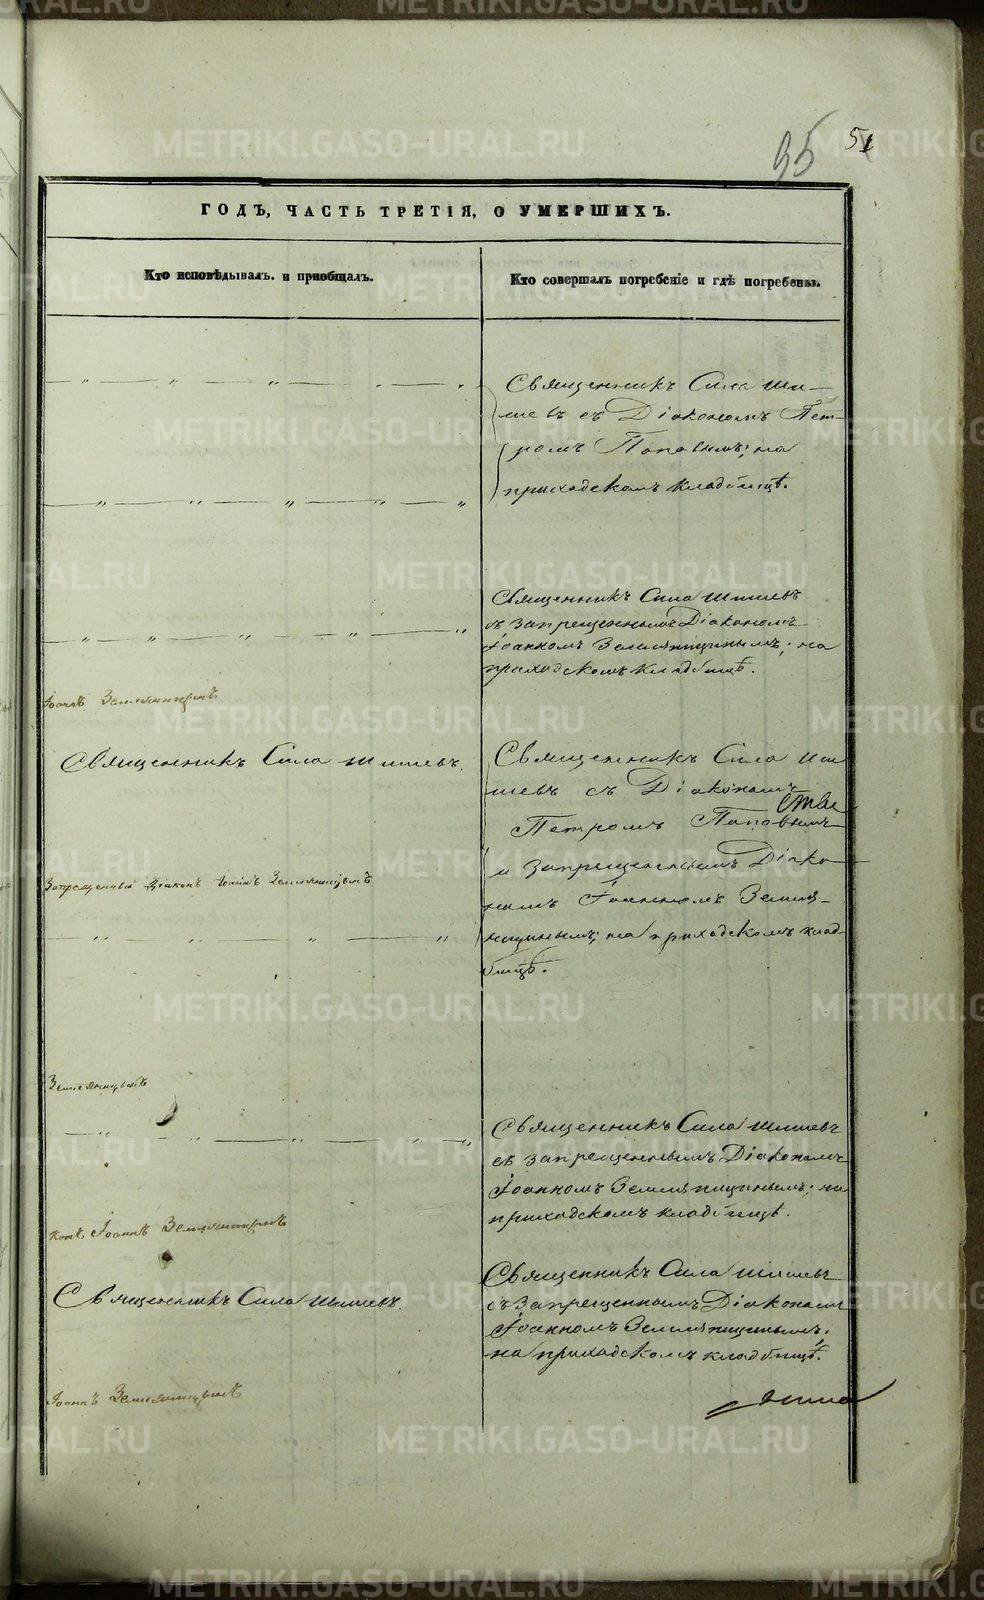 95 51
ГОДЪ, ЧАСТЬ ТРЕТІЯ, О УМЕРШИХЪ.
Кто исповѣдывалъ. и приобщалъ.
Кто совершалъ погребеніе и гдѣ погребены.
Священникъ Сила Ши-
шевъ съ Діакономъ Пет-
ромъ Поповымъ; на
приходскомъ кладбищѣ.
Священникъ Сила Шишевъ
съ запрещеннымъ Діакономъ
Іоанномъ Земляницынымъ; на
приходскомъ кладбищѣ.
Іоаннъ Земляницынъ
Священникъ Сила Шишевъ.
Священникъ Сила Ши
шевъ съ Діакономъ
Петромъ Поповымъ
и запрещеннымъ Діако
номъ Іоанномъ Земля-
ницынымъ; на приходскомъ клад
бищѣ.
Запрещенный Діаконъ Іоаннъ Земляницынъ
Земляницынъ
Священникъ Сила Шишевъ
съ запрещеннымъ Діакономъ
Іоанномъ Земляницынымъ; на
приходскомъ кладбищѣ.
конъ Іоаннъ Земляницынъ
Священникъ Сила Шишевъ.
Священникъ Сила Шишевъ
съ запрещеннымъ Діакономъ
Іоанномъ Земляницынымъ;
на приходскомъ кладбищѣ.
Іоаннъ Земляницынъ
METRIKI.GASO-URAL.RU